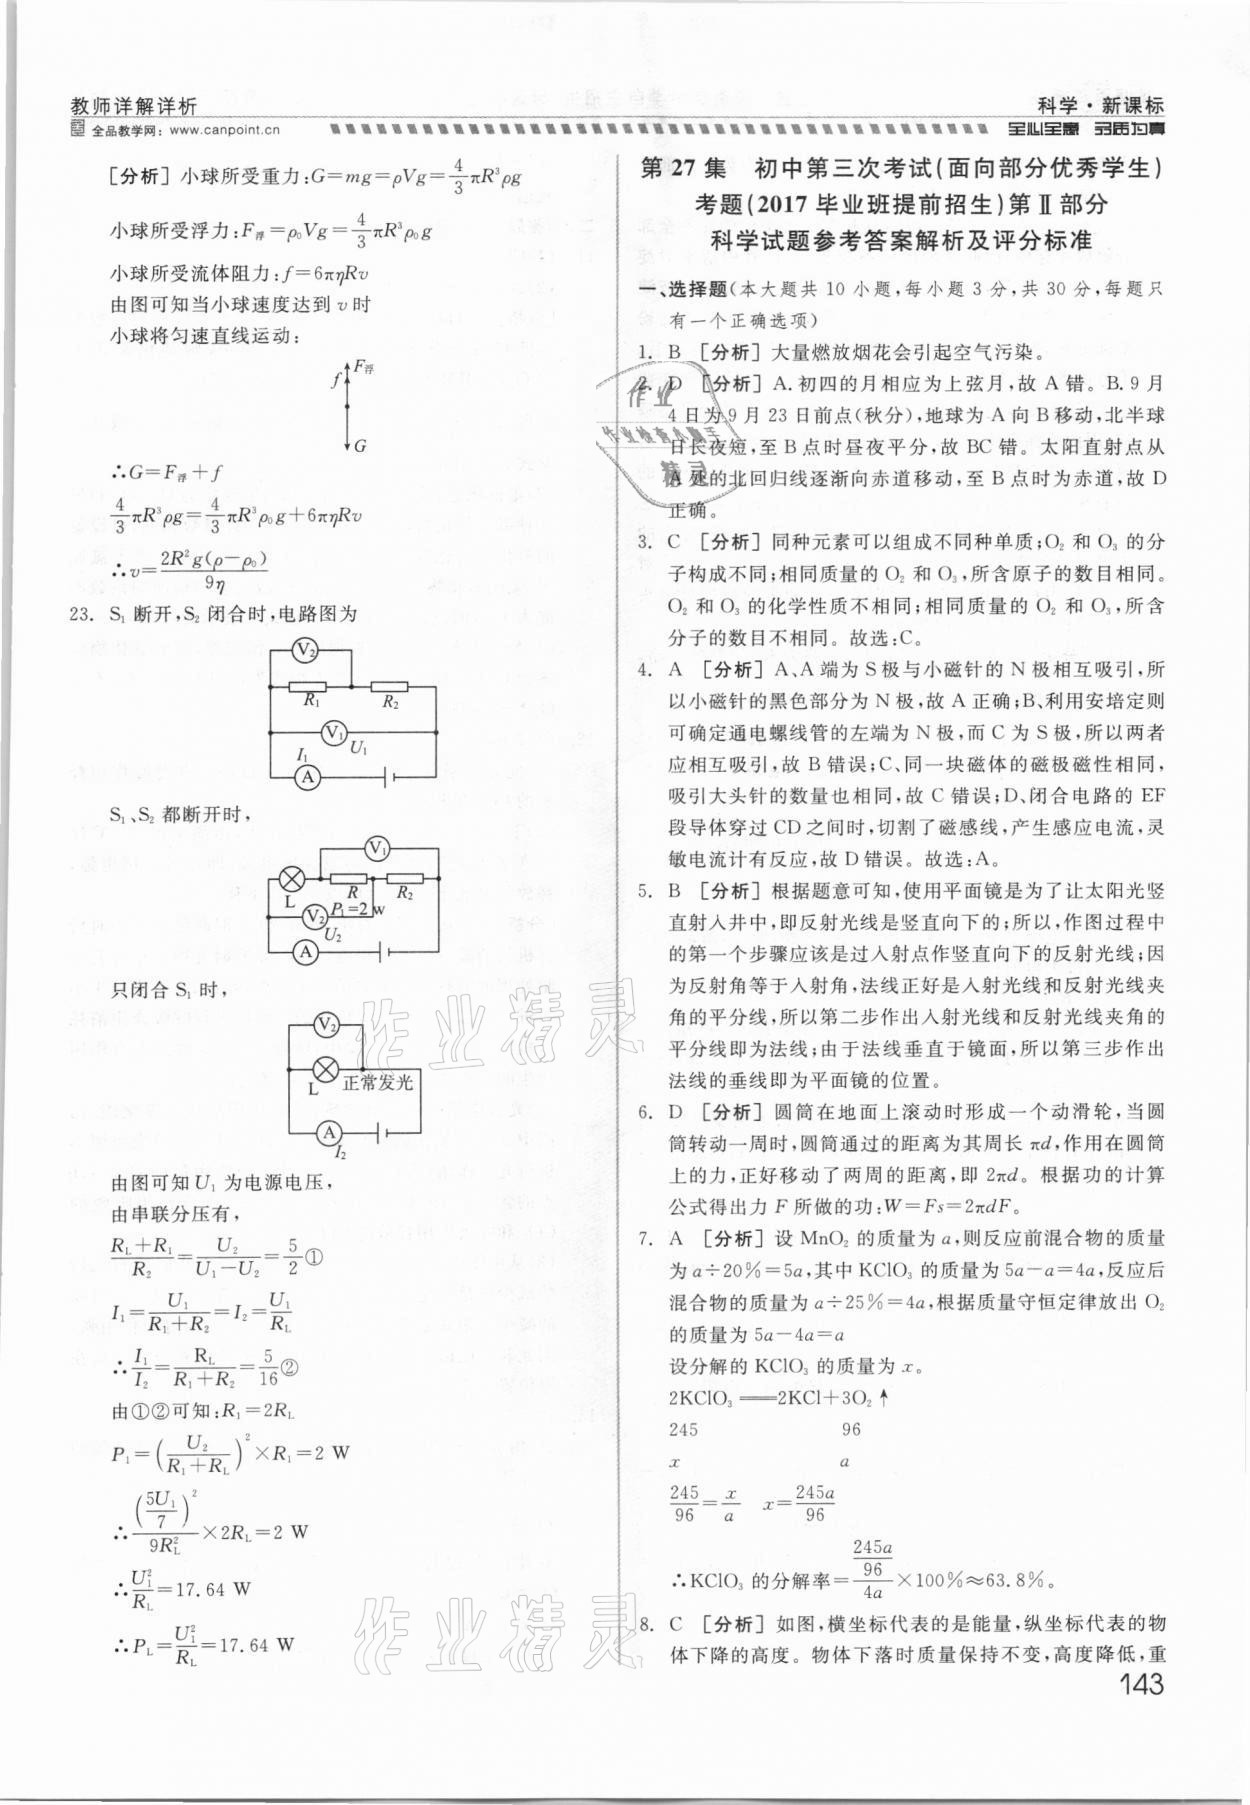 教师详解详析
全品教学网：www.canpoint.cn
科学·新课标
全心全意 夯质为真
[分析]小球所受重力：G=mg=ρVg=4/3πR³ρg
小球所受浮力：F浮=ρ₀Vg=4/3πR³ρ₀g
小球所受流体阻力：f=6πηRv
由图可知当小球速度达到v时
小球将匀速直线运动：
F浮
f
G
∴G=F浮+f
4/3πR³ρg=4/3πR³ρ₀g+6πηRv
∴v=2R²g(ρ-ρ₀)/9η
23. S₁断开，S₂闭合时，电路图为
V₂
R₁ R₂
V₁ U₁
I₁
A
S₁、S₂都断开时，
V₁
L R R₂
V₂ P₁=2 w
U₂
A
只闭合S₁时，
V₂
L 正常发光
A
I₂
由图可知U₁为电源电压，
由串联分压有，
(R_L+R₁)/R₂=U₂/(U₁-U₂)=5/2①
I₁=U₁/(R₁+R₂)=I₂=U₁/R_L
∴I₁/I₂=R_L/(R₁+R₂)=5/16②
由①②可知：R₁=2R_L
P₁=(U₂/(R₁+R_L))²×R₁=2 W
∴(5U₁/7)²/9R_L²×2R_L=2 W
∴U₁²/R_L=17.64 W
∴P_L=U₁²/R_L=17.64 W
第27集 初中第三次考试(面向部分优秀学生)
考题(2017毕业班提前招生)第Ⅱ部分
科学试题参考答案解析及评分标准
一、选择题(本大题共10小题，每小题3分，共30分，每题只
有一个正确选项)
1. B [分析]大量燃放烟花会引起空气污染。
2. D [分析]A.初四的月相应为上弦月，故A错。B.9月
4日为9月23日前点(秋分)，地球为A向B移动，北半球
日长夜短，至B点时昼夜平分，故BC错。太阳直射点从
A处的北回归线逐渐向赤道移动，至B点时为赤道，故D
正确。
3. C [分析]同种元素可以组成不同种单质；O₂和O₃的分
子构成不同；相同质量的O₂和O₃，所含原子的数目相同。
O₂和O₃的化学性质不相同；相同质量的O₂和O₃，所含
分子的数目不相同。故选：C。
4. A [分析]A、A端为S极与小磁针的N极相互吸引，所
以小磁针的黑色部分为N极，故A正确；B、利用安培定则
可确定通电螺线管的左端为N极，而C为S极，所以两者
应相互吸引，故B错误；C、同一块磁体的磁极磁性相同，
吸引大头针的数量也相同，故C错误；D、闭合电路的EF
段导体穿过CD之间时，切割了磁感线，产生感应电流，灵
敏电流计有反应，故D错误。故选：A。
5. B [分析]根据题意可知，使用平面镜是为了让太阳光竖
直射入井中，即反射光线是竖直向下的；所以，作图过程中
的第一个步骤应该是过入射点作竖直向下的反射光线；因
为反射角等于入射角，法线正好是入射光线和反射光线夹
角的平分线，所以第二步作出入射光线和反射光线夹角的
平分线即为法线；由于法线垂直于镜面，所以第三步作出
法线的垂线即为平面镜的位置。
6. D [分析]圆筒在地面上滚动时形成一个动滑轮，当圆
筒转动一周时，圆筒通过的距离为其周长πd，作用在圆筒
上的力，正好移动了两周的距离，即2πd。根据功的计算
公式得出力F所做的功：W=Fs=2πdF。
7. A [分析]设MnO₂的质量为a，则反应前混合物的质量
为a÷20%=5a，其中KClO₃的质量为5a-a=4a，反应后
混合物的质量为a÷25%=4a，根据质量守恒定律放出O₂
的质量为5a-4a=a
设分解的KClO₃的质量为x。
2KClO₃══2KCl+3O₂↑
245 96
x a
245/96=x/a x=245a/96
∴KClO₃的分解率=(245a/96)/4a×100%≈63.8%。
8. C [分析]如图，横坐标代表的是能量，纵坐标代表的物
体下降的高度。物体下落时质量保持不变，高度降低，重
143
作业
作业检查小助手
精灵
作业精灵
作业精灵